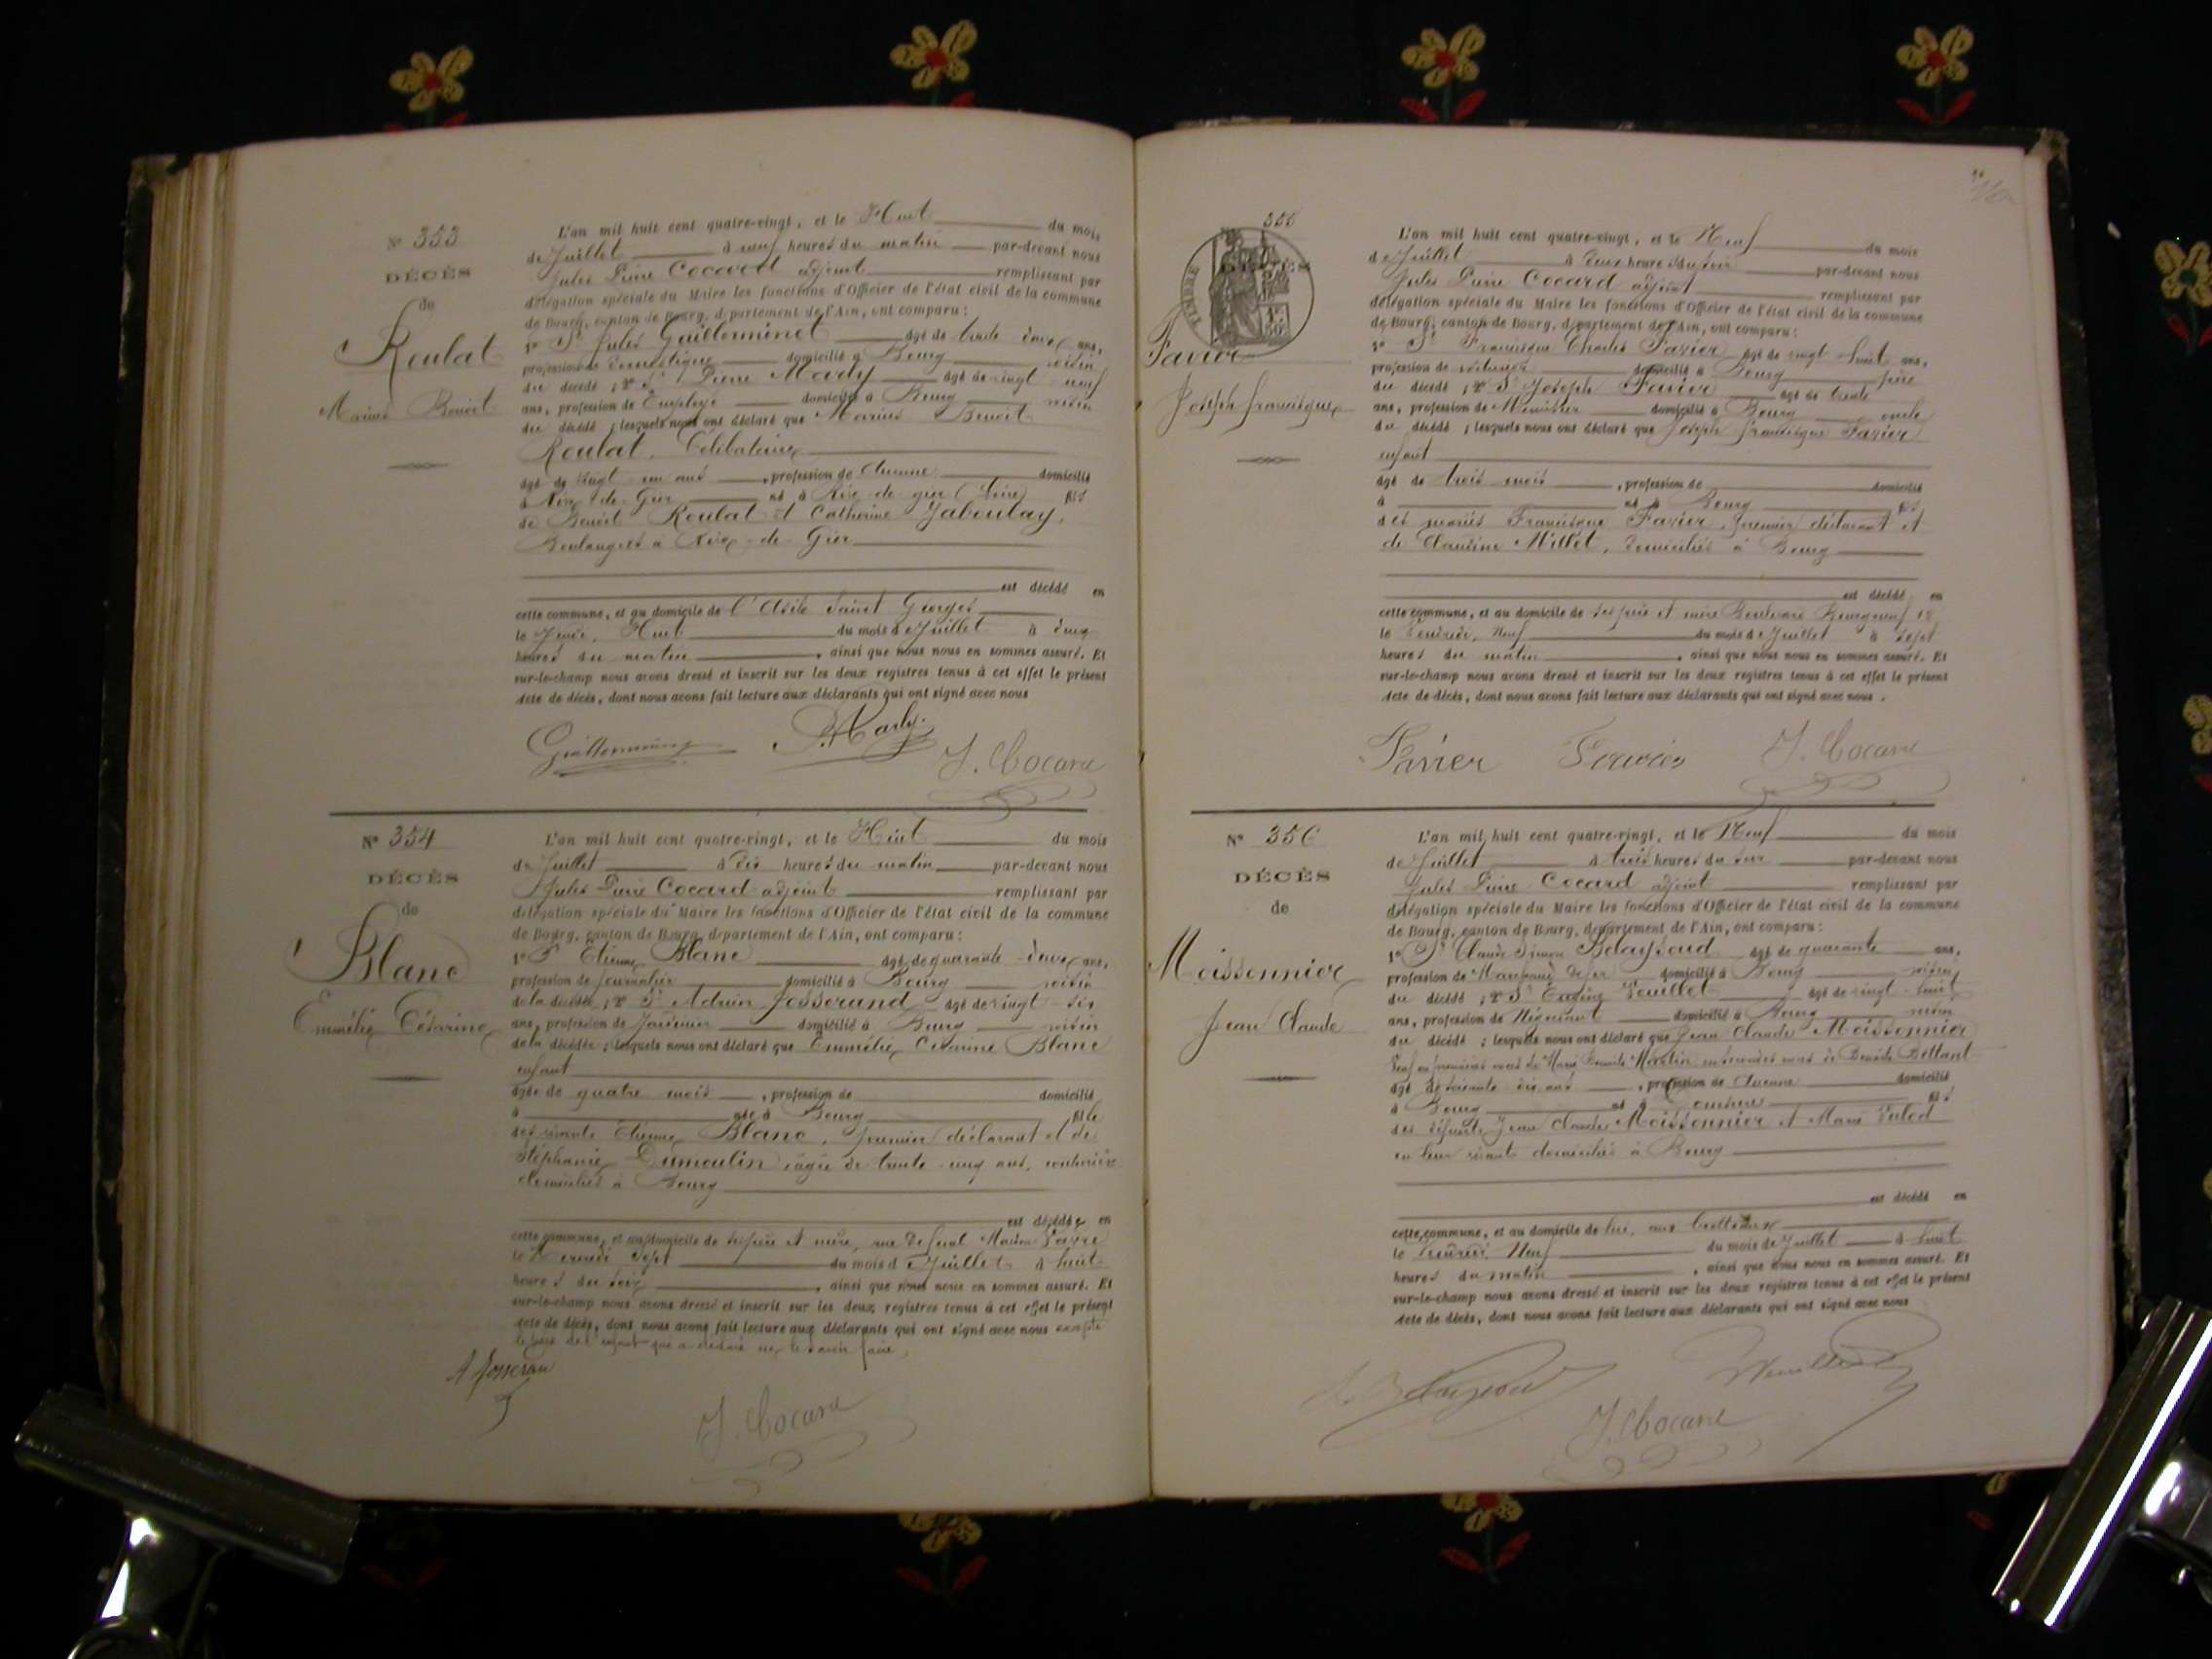 N° 353
DÉCÈS
de
Roulat
Marius Benoit
L'an mil huit cent quatre-vingt, et le Huit du mois
de Juillet à neuf heures du matin par-devant nous
Jules Pierre Cocard adjoint remplissant par
délégation spéciale du Maire les fonctions d'Officier de l'état civil de la commune
de Bourg, canton de Bourg, département de l'Ain, ont comparu :
1° Sr Jules Guillerminet âgé de trente deux ans,
profession de domestique domicilié à Bourg voisin
du décédé ; 2° Sr Pierre Marly âgé de vingt neuf
ans, profession de Employé domicilié à Bourg voisin
du décédé ; lesquels nous ont déclaré que Marius Benoit
Roulat, Célibataire
âgé de vingt un ans , profession de Aucune domicilié
à Rive-de-Gier né à Rive-de-gier (Loire) fils
de Benoit Roulat et Catherine Jaboulay,
Boulangers à Rive-de-Gier
est décédé en
cette commune, et au domicile de l'Asile Saint Georges
le Jeudi, Huit du mois de Juillet à deux
heures du matin , ainsi que nous nous en sommes assuré. Et
sur-le-champ nous avons dressé et inscrit sur les deux registres tenus à cet effet le présent
acte de décès, dont nous avons fait lecture aux déclarants qui ont signé avec nous
P. Marly
J. Cocard
N° 354
DÉCÈS
de
Blanc
Emmélie Césarine
L'an mil huit cent quatre-vingt, et le Huit du mois
de Juillet à dix heures du matin par-devant nous
Jules Pierre Cocard adjoint remplissant par
délégation spéciale du Maire les fonctions d'Officier de l'état civil de la commune
de Bourg, canton de Bourg, département de l'Ain, ont comparu :
1° Sr Etienne Blanc âgé de quarante deux ans,
profession de Journalier domicilié à Bourg voisin
de la décédée ; 2° Sr Adrien Josserand âgé de vingt six
ans, profession de Jardinier domicilié à Bourg voisin
de la décédée ; lesquels nous ont déclaré que Emmélie Césarine Blanc
enfant
âgée de quatre mois , profession de domicilié
à née à Bourg fille
des vivants Etienne Blanc, premier déclarant et de
Stéphanie Dumoulin âgée de trente cinq ans, couturière
domiciliés à Bourg
est décédée en
cette commune, et au domicile de ses père et mère, rue
le Mercredi Sept du mois d Juillet à huit
heures du soir , ainsi que nous nous en sommes assuré. Et
sur-le-champ nous avons dressé et inscrit sur les deux registres tenus à cet effet le présent
acte de décès, dont nous avons fait lecture aux déclarants qui ont signé avec nous excepté
le père de l'enfant qui a déclaré ne le savoir faire.
A Josseran
J. Cocard
355
TIMBRE
Favier
Joseph Francisque
L'an mil huit cent quatre-vingt, et le Neuf du mois
de Juillet à deux heures du soir par-devant nous
Jules Pierre Cocard adjoint remplissant par
délégation spéciale du Maire les fonctions d'Officier de l'état civil de la commune
de Bourg, canton de Bourg, département de l'Ain, ont comparu :
1° Sr Francisque Charles Favier âgé de vingt huit ans,
profession de voiturier domicilié à Bourg père
du décédé ; 2° Sr Joseph Favier âgé de trente
ans, profession de Menuisier domicilié à Bourg oncle
du décédé ; lesquels nous ont déclaré que Joseph Francisque Favier
enfant
âgé de trois mois , profession de domicilié
à né à Bourg fils
des mariés Francisque Favier, premier déclarant et
de Claudine Millet, domiciliés à Bourg
est décédé en
cette commune, et au domicile de ses père et mère Boulevard Bourgneuf
le Vendredi, Neuf du mois de Juillet à sept
heures du matin , ainsi que nous nous en sommes assuré. Et
sur-le-champ nous avons dressé et inscrit sur les deux registres tenus à cet effet le présent
acte de décès, dont nous avons fait lecture aux déclarants qui ont signé avec nous .
Favier Favier J. Cocard
N° 356
DÉCÈS
de
Moissonnier
Jean Claude
L'an mil huit cent quatre-vingt, et le Neuf du mois
de Juillet à trois heures du soir par-devant nous
Jules Pierre Cocard adjoint remplissant par
délégation spéciale du Maire les fonctions d'Officier de l'état civil de la commune
de Bourg, canton de Bourg, département de l'Ain, ont comparu :
1° Sr Claude Simon âgé de quarante ans,
profession de Marchand de fer domicilié à Bourg voisin
du décédé ; 2° Sr Eugène âgé de vingt huit
ans, profession de Négociant domicilié à Bourg voisin
du décédé ; lesquels nous ont déclaré que Jean Claude Moissonnier
Veuf en premières noces de Marie Martin en secondes noces de Benoite
âgé de soixante dix ans , profession de Aucune domicilié
à Bourg né à fils
des défunts Jean Claude Moissonnier et Marie
en leur vivant domiciliés à Bourg
est décédé en
cette commune, et au domicile de lui, aux
le Vendredi Neuf du mois de Juillet à huit
heures du matin , ainsi que nous nous en sommes assuré. Et
sur-le-champ nous avons dressé et inscrit sur les deux registres tenus à cet effet le présent
acte de décès, dont nous avons fait lecture aux déclarants qui ont signé avec nous
J. Cocard